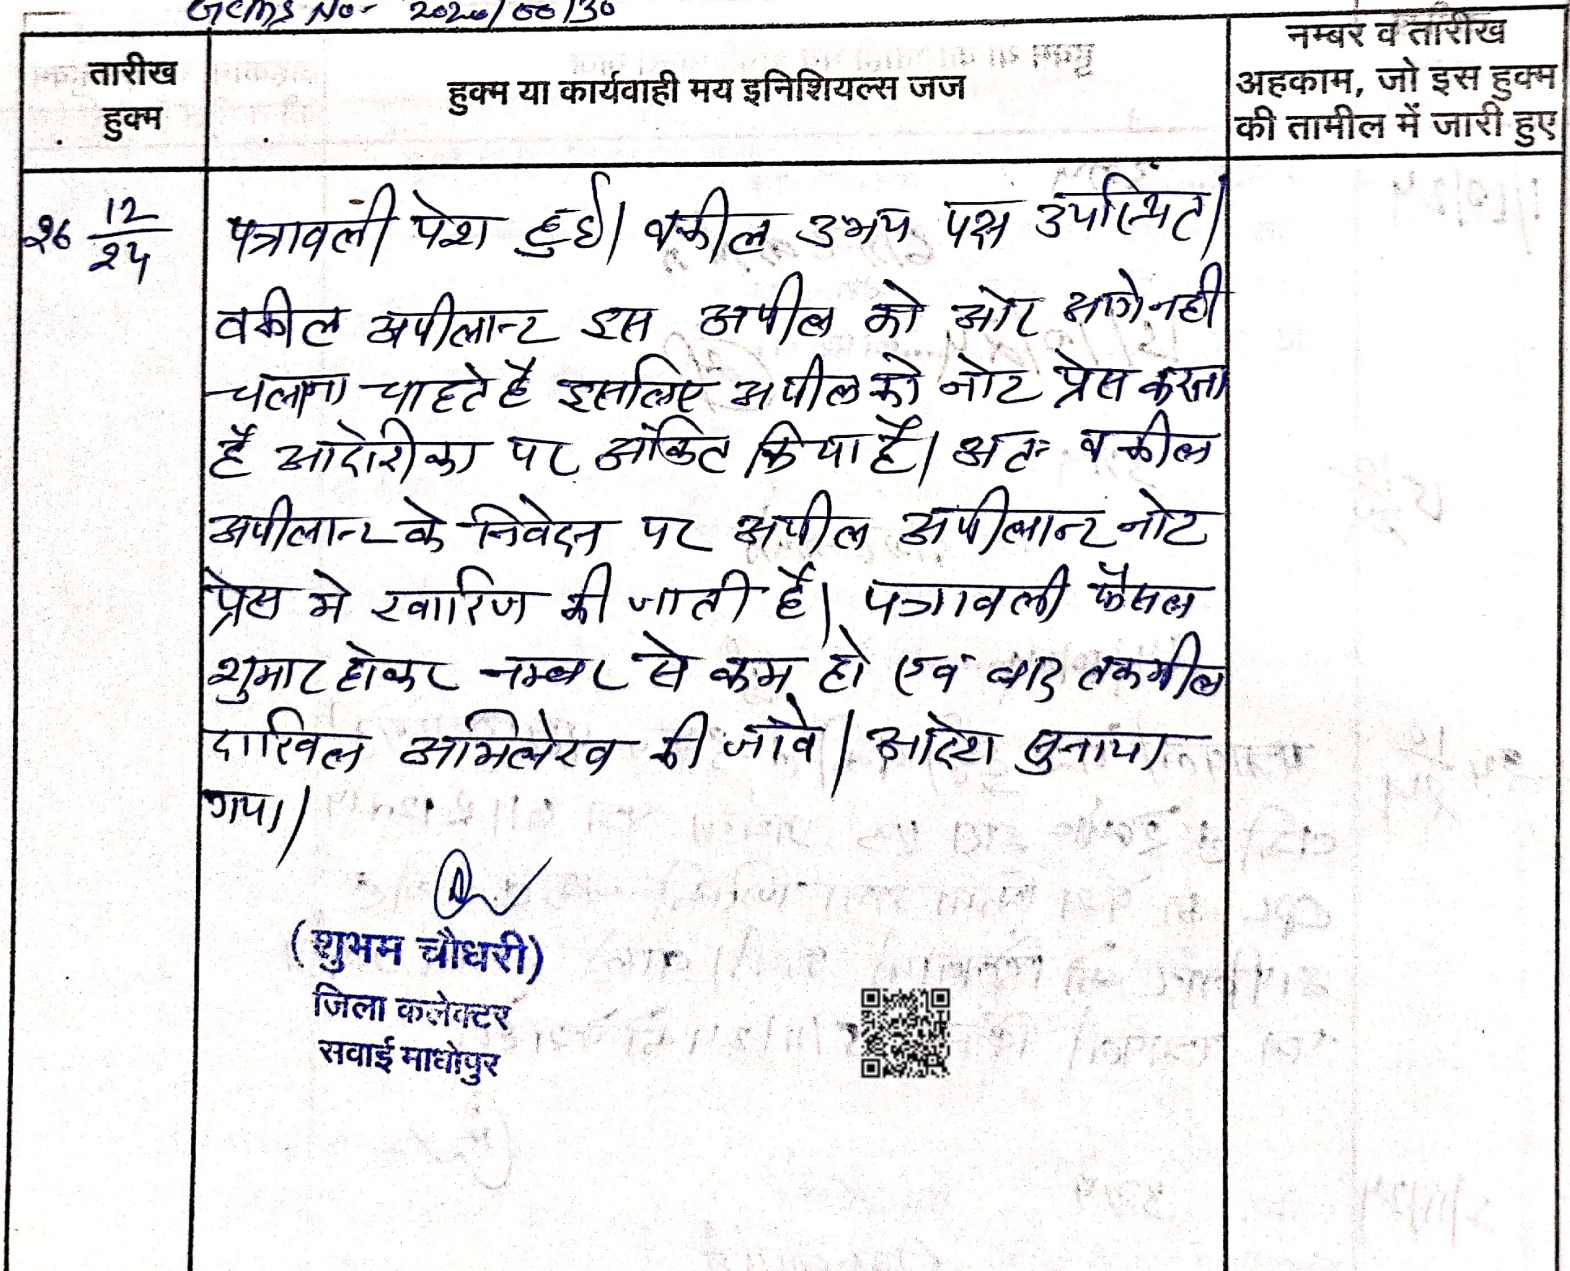 GCMS No- 2020/00130
तारीख हुक्म
हुक्म या कार्यवाही मय इनिशियल्स जज
नम्बर व तारीख अहकाम, जो इस हुक्म की तामील में जारी हुए
26 12/24
पत्रावली पेश हुई। वकील उभय पक्ष उपस्थित।
वकील अपीलान्ट इस अपील को ओर आगे नही
चलाना चाहते है इसलिए अपील को नोट प्रेस करना
है आदेशिका पर अंकित किया है। अतः वकील
अपीलान्ट के निवेदन पर अपील अपीलान्ट नोट
प्रेस मे खारिज की जाती है। पत्रावली फैसल
शुमार होकर नम्बर से कम हो एवं बाद तकमील
दाखिल अभिलेख की जावे। आदेश सुनाया
गया।
(शुभम चौधरी)
जिला कलेक्टर
सवाई माधोपुर